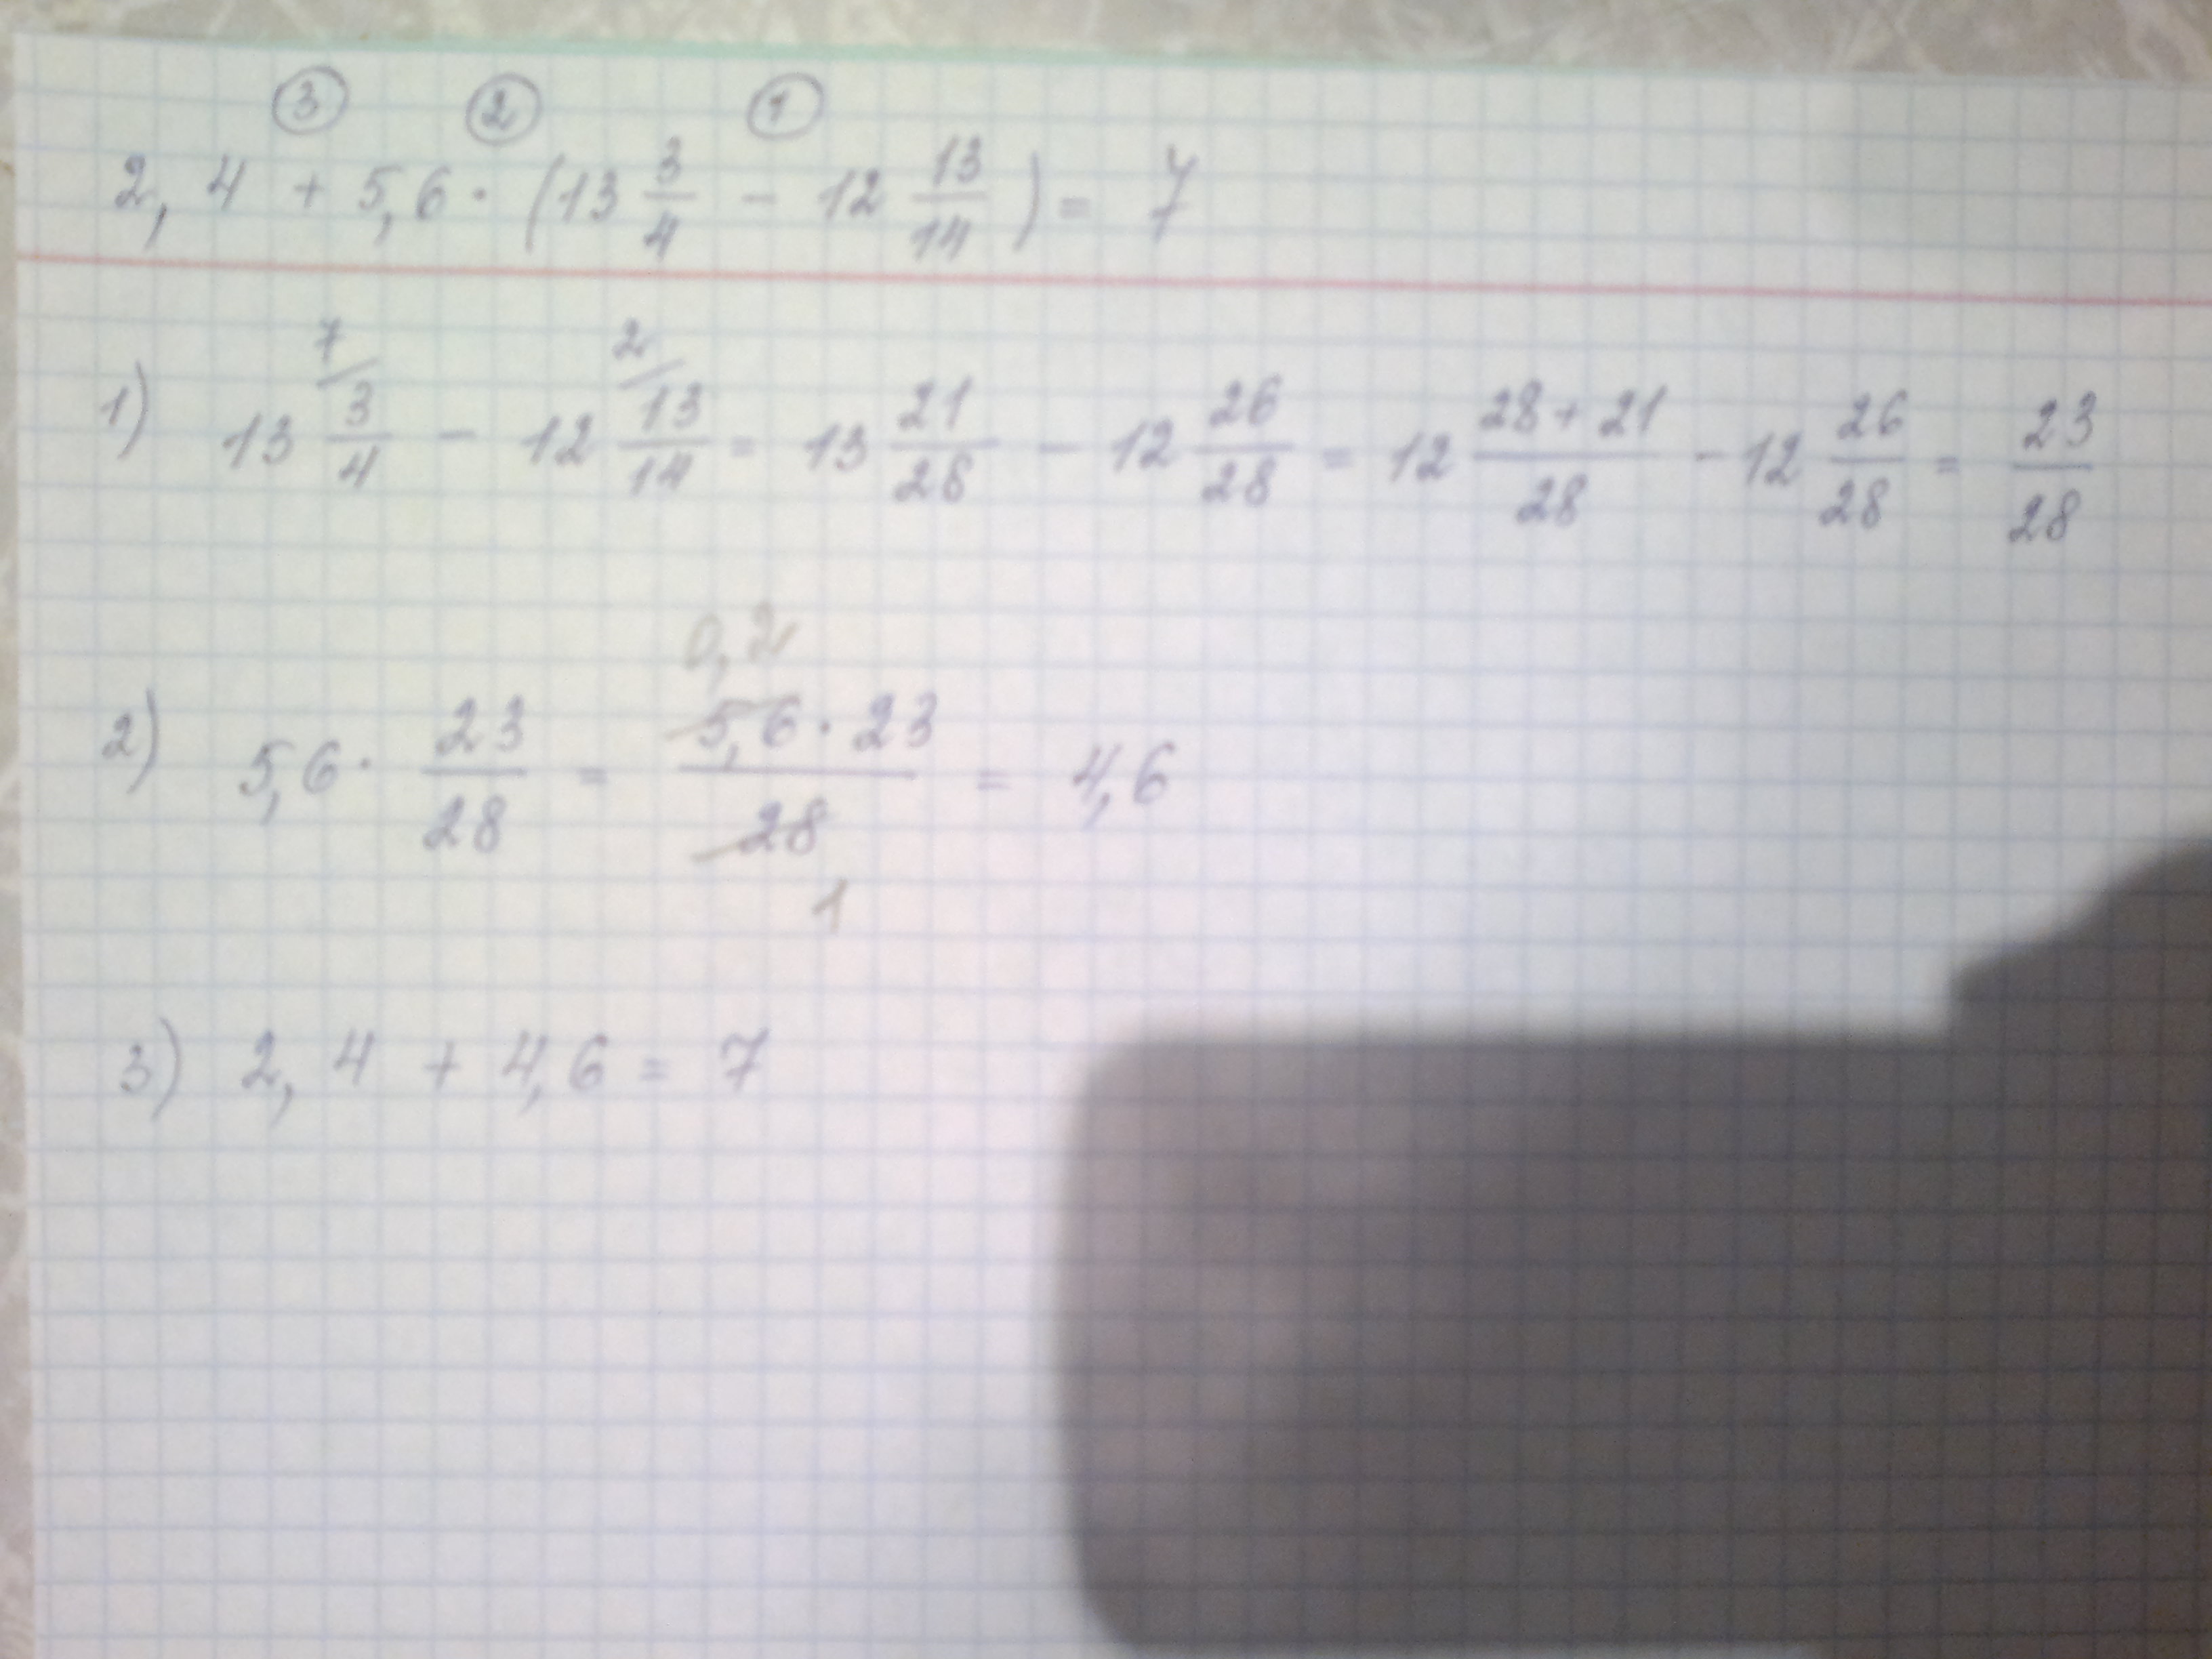 ③ ② ①
2,4 + 5,6 · (13 3/4 − 12 13/14) = 7
1) 13 3/4 (7/) − 12 13/14 (2/) = 13 21/28 − 12 26/28 = 12 (28+21)/28 − 12 26/28 = 23/28
0,2
2) 5,6 · 23/28 = (5,6 · 23)/28 = 4,6
1
3) 2,4 + 4,6 = 7